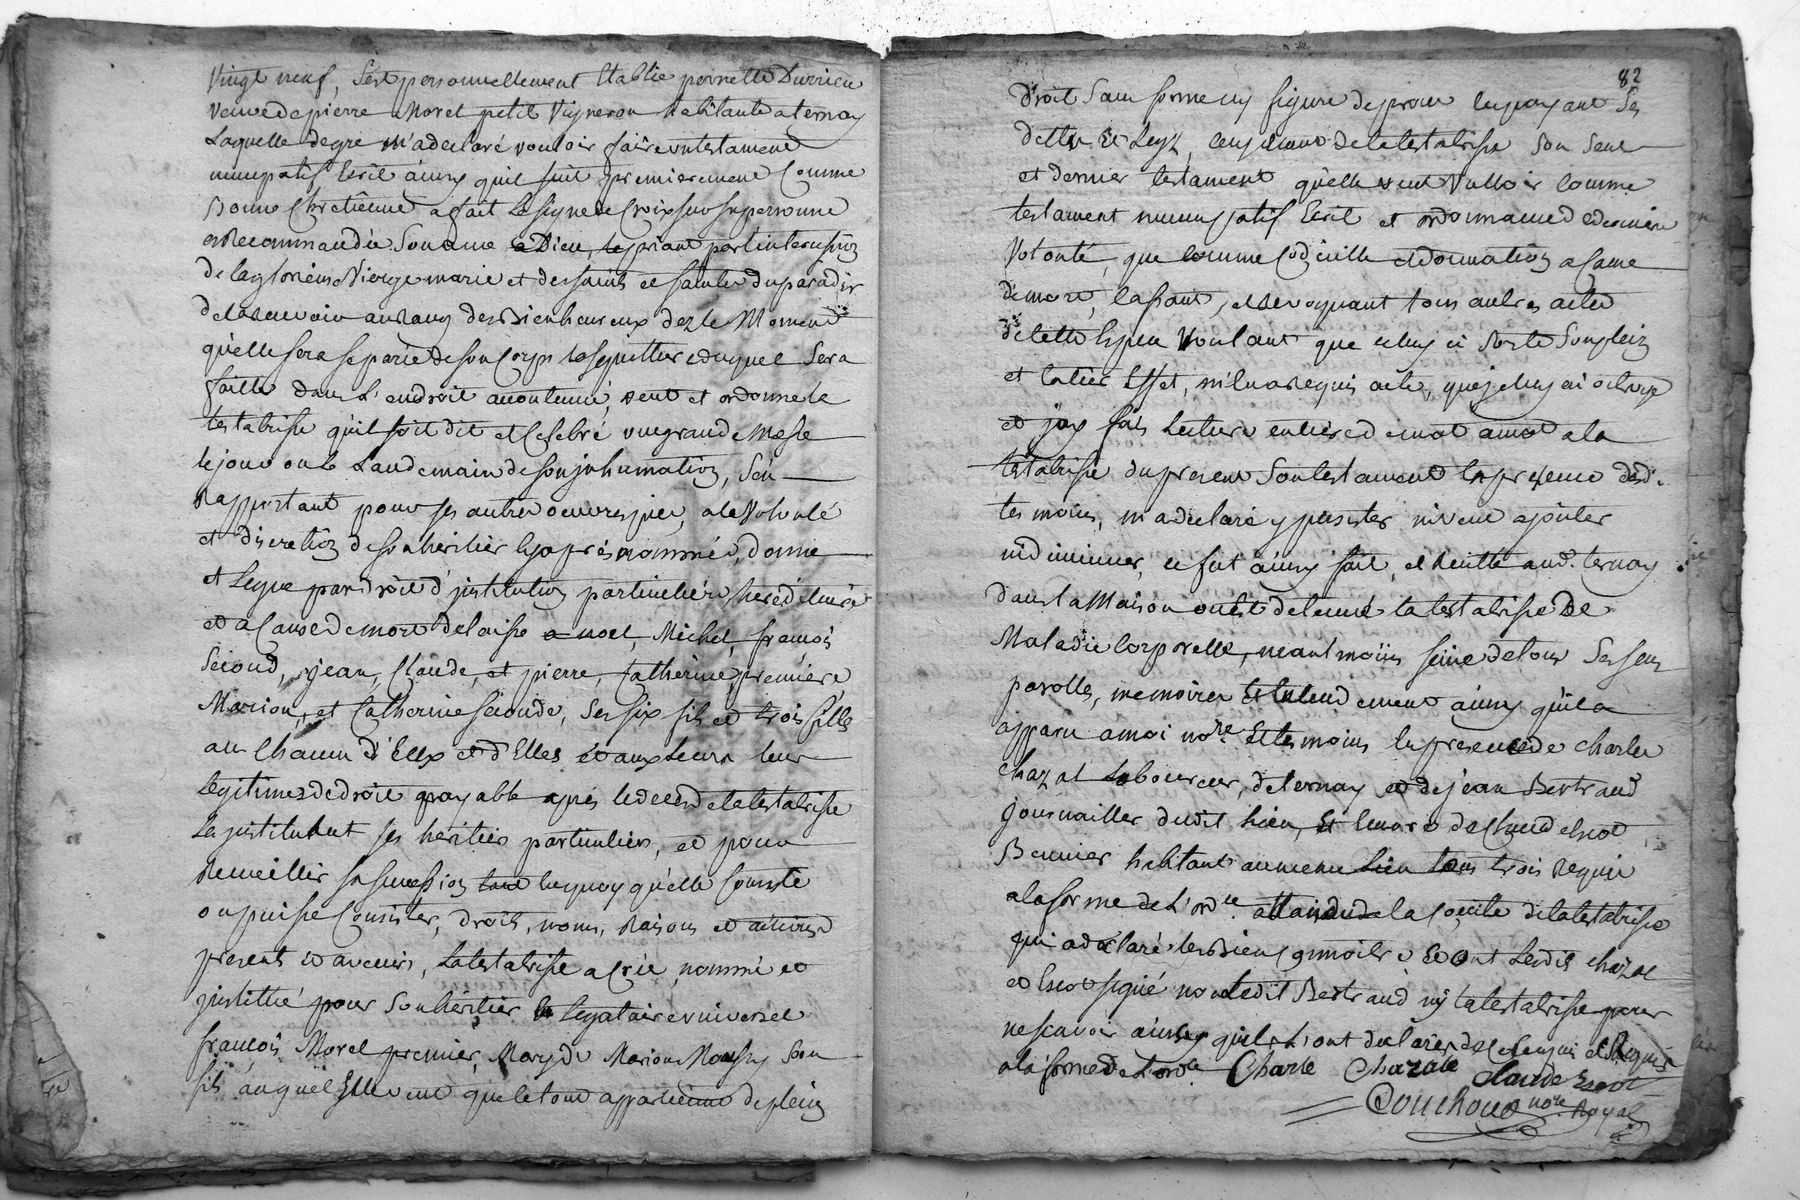 Vingt neuf, S'est personnellement Etablie pernette Durrieu
veuve de pierre Morel petit Vigneron habitante a ternay
Laquelle de gre m'a declaré vouloir faire un testament
nuncupatif Ecrit ainsy quil suit premierement Comme
Bonne Chretiénne a fait Le signe de Croix sur sa personne
et Recommandée Son ame a Dieu, le priant par l'intercession
De la glorieuse Vierge marie et des saints et saintes du paradis
de la recevoir au Rang des Bienheureux dez le Moment
qu'elle sera separée de son Corps la sepulture duquel Sera
faitte dans L'endroit accoutumé, veut et ordonne la
testatrisse qu'il soit dit et Celebré une grande Messe
le jour ou le Landemain de son jnhumation, Sen
Rapportant pour ses autres oeuvres pies, a la Volonté
et discretion de son heritier cy après nommé, donne
et Legue par droit d'jnstitution particuliére, hereditaire
et a Cause de mort delaisse a noel, Michel, françois
Second, jean, Claude, et pierre, Catherine premiere
Marion, et Catherine seconde, Ses six fils et trois filles
au Chacun d'Eux et d'Elles et aux Leurs leur
Legitimes de droit payable après le deced de la testatrisse
Les jnstituant ses heritiers particuliers, et pour
Recueillir sa succession en quoy qu'elle Consiste
ou puisse Consister, droits, noms, Raisons et actions
presents et avenirs, La testatrisse a Créé, nommé et
jnstitué pour Son héritier et Legataire universel
françois Morel premier, Mary de Marion Son
fils auquel Elle veut que le tout appartienne de plein
82
droit Sans forme ny figure de proces en payant Ses
dettes et Legz, cecy étant de la testatrisse Son Seul
et dernier testament qu'elle veut Valloir Comme
testament nuncupatif Ecrit et ordonnance de derniere
Volonté, que Comme Codicille et donnation a Cause
de mort, Cassant, et revoquant tous autres actes
de cette Espece Voulant que celuy ci sorte Son plein
et Entier Effet, m'en a Requis acte, que je luy ai octroyé
et j'ay fait Lecture entiere de mot amot a la
testatrisse du present Son testament En presence desd.
temoins, m'a declaré y persister ni veut ajouter
ni diminuer, ce fut ainsy fait, et Recitté aud. ternay
Dans la Maison ou est detenue la testatrisse De
Maladie Corporelle, neantmoins seine de tous Ses sens
parolles, memoire et Entendement ainsy quil a
apparu a moi nore. Et temoins En presence de Charle
Chazal Laboureur, de ternay et de jean Bertrand
journailler dudit Lieu, et Encore de Claude Escot
Bennier habitant au meme Lieu tous trois Requis
a la forme de L'ordce. attendu la Cécité de la testatrisse
qui a declaré et Ont Lesdits Chazal
et Escot signé non Ledit Bertrand ny la testatrisse pour
ne scavoir ainsy quils L'ont declarés de Ce Enquis et Requis
a la forme de L'ordce Charle Chazale Claude Escot
Couchoud nore. Royal